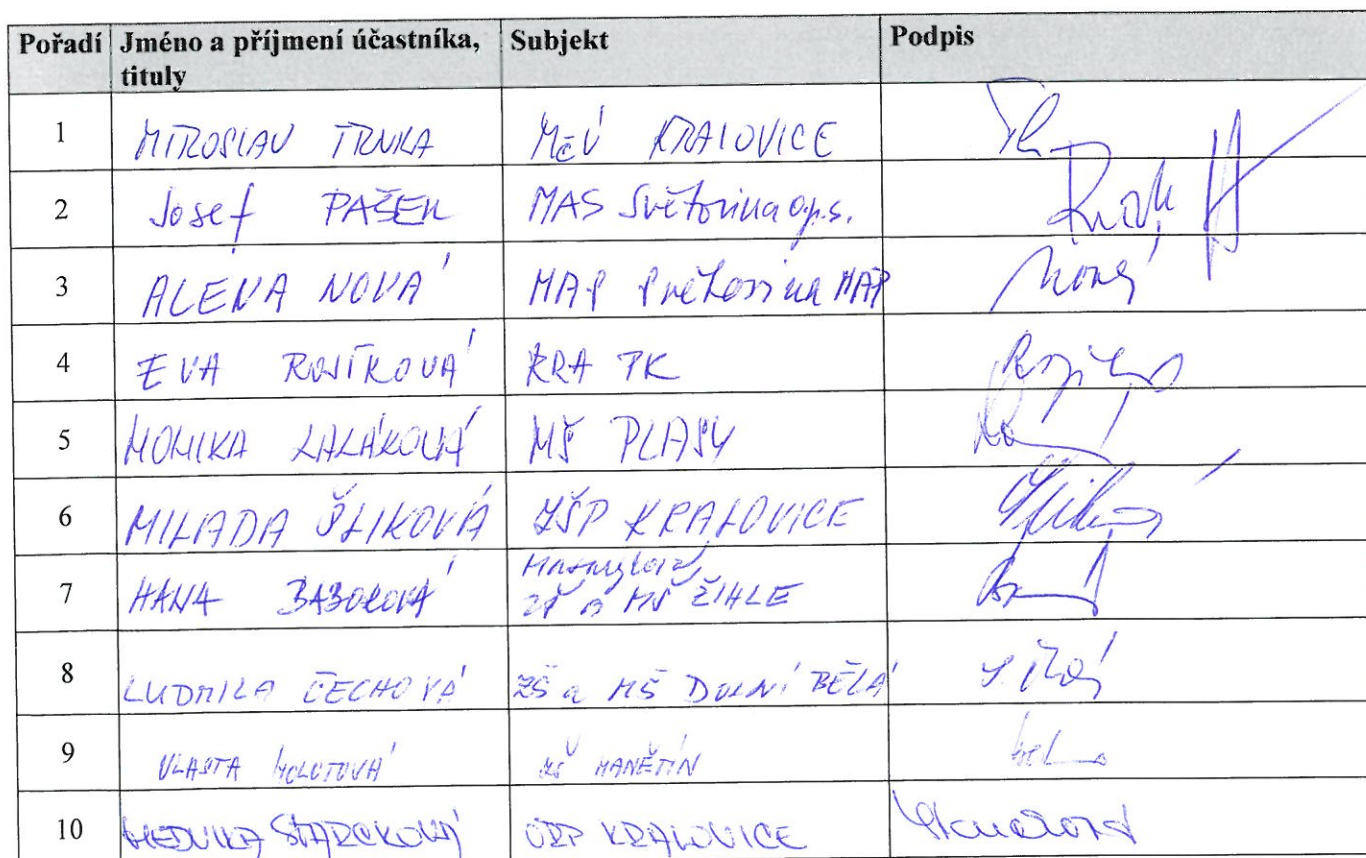 Pořadí Jméno a příjmení účastníka, tituly Subjekt Podpis
1 MIROSLAV TRNKA MěÚ KRALOVICE
2 Josef PAŠEK MAS Světovina o.p.s.
3 ALENA NOVÁ MAP Světovina MAP Nová
4 EVA ROJÍKOVÁ RRA PK
5 MONIKA LALÁKOVÁ MŠ PLASY
6 MILADA ŠLIKOVÁ ZŠP KRALOVICE
7 HANA BABOROVÁ ZŠ a MŠ ŽIHLE
8 LUDMILA ČECHOVÁ ZŠ a MŠ DOLNÍ BĚLÁ
9 VLASTA ZŠ MANĚTÍN
10 HEDVIKA ŠTARCKOVÁ ORP KRALOVICE